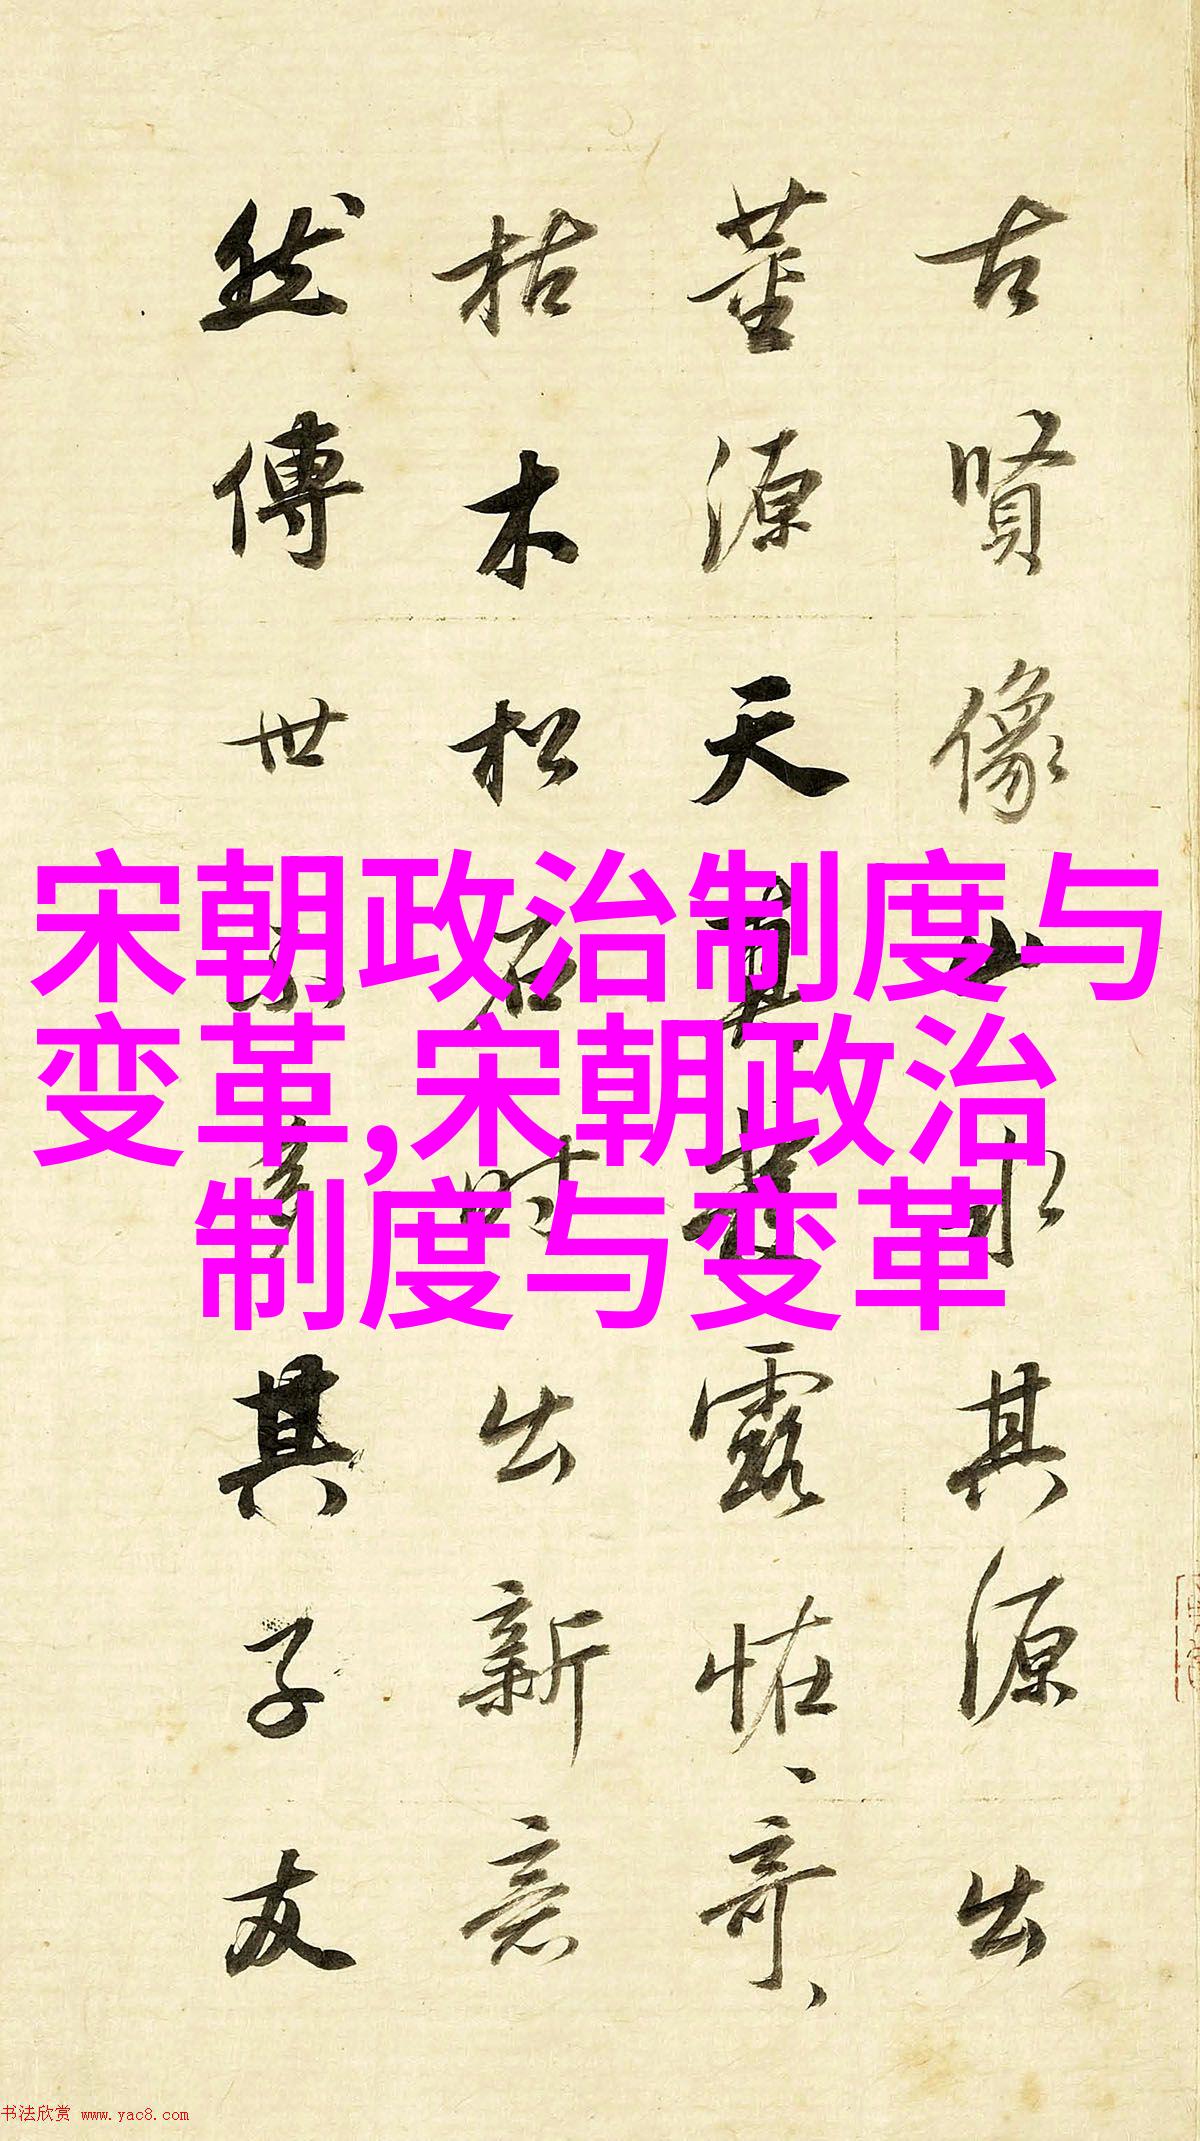 古賢像山水其源出
董源天真發露恠、奇、
枯木松石時出新意
然傳世不多其子友
宋朝政治制度与
变革,宋朝政治
制度与变革
书法欣赏 www.yac8.com